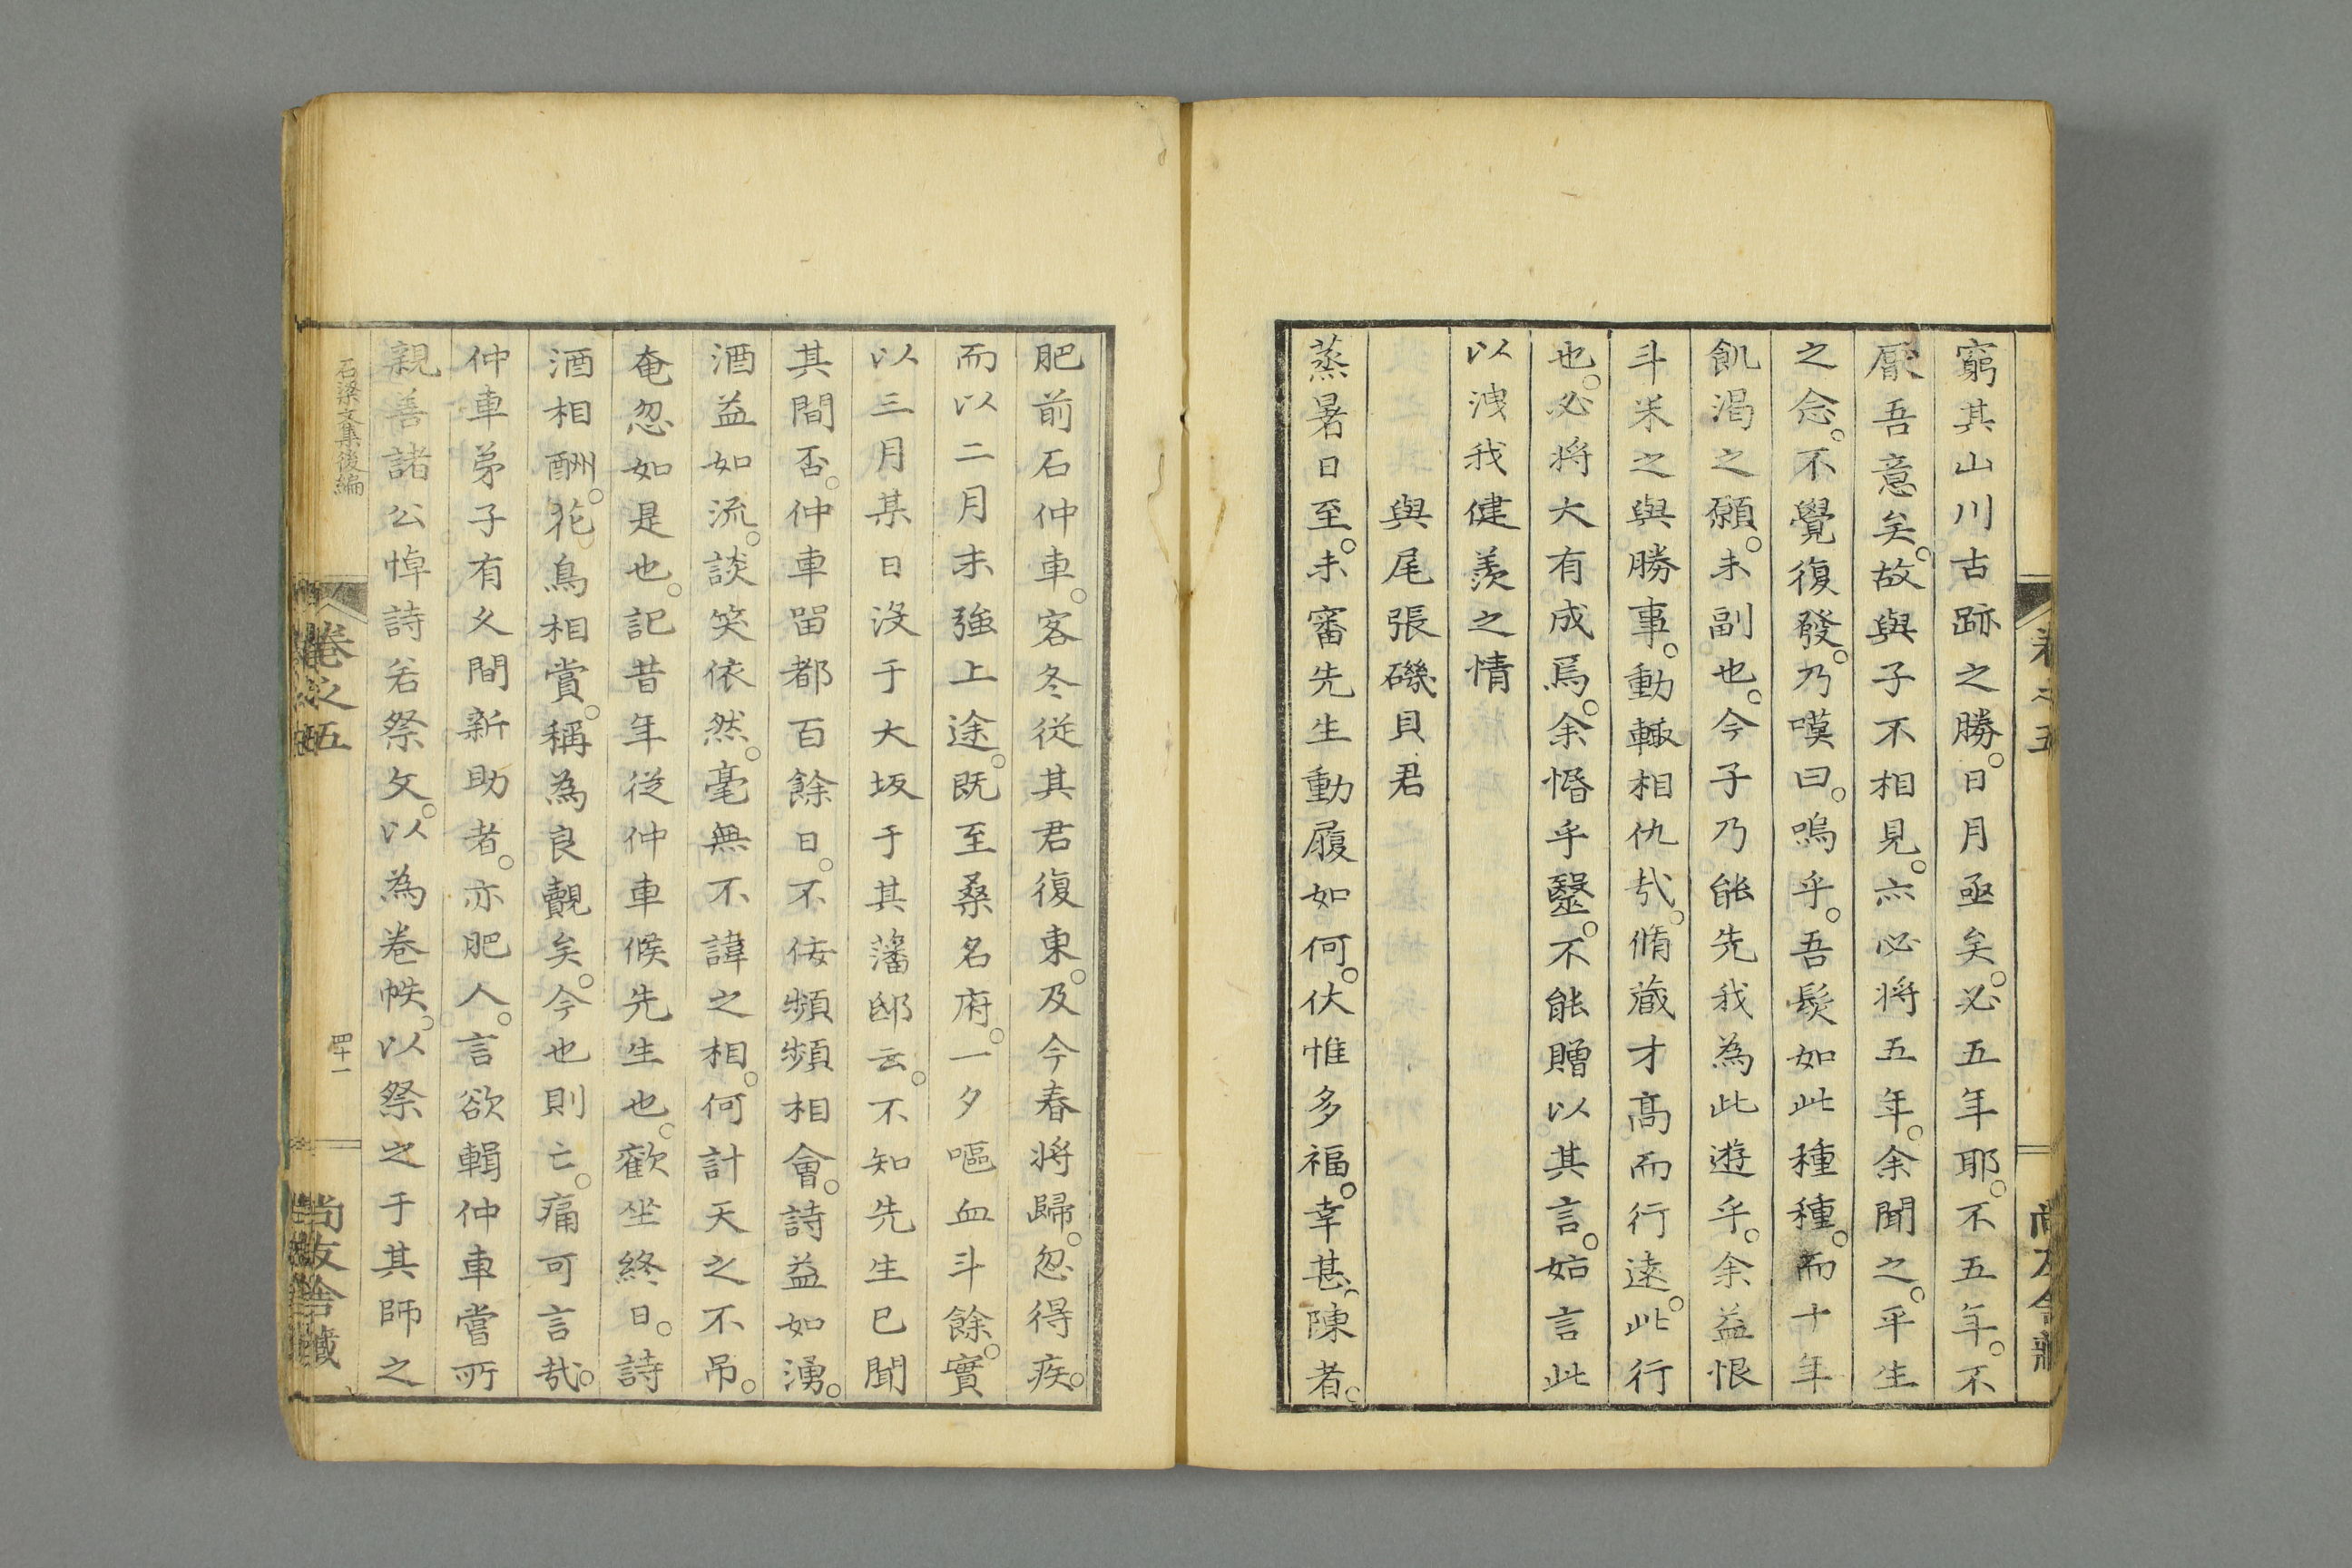 窮其山川古跡之勝。日月亟矣。必五年耶。不五年。不
厭吾意矣。故與子不相見。亦必將五年。余聞之。平生
之念。不覺復發。乃嘆曰。嗚乎。吾髮如此種種。而十年
飢渴之願。未副也。今子乃能先我為此遊乎。余益恨
斗米之與勝事。動輙相仇㢤。脩蔵才高而行遠。此行
也。必將大有成焉。余惛乎毉。不能贈以其言。姑言此
以洩我健羨之情
與尾張磯貝君
蒸暑日至。未審先生動履如何。伏惟多福。幸甚。陳者。
肥前石仲車。客冬従其君復東。及今春將歸。忽得疾。
而以二月未強上途。既至桑名府。一夕嘔血斗餘。實
以三月某日没于大坂于其藩邸云。不知先生已聞
其間否。仲車畱都百餘日。不佞頻頻相會。詩益如湧。
酒益如流。談笑依然。毫無不諱之相。何計天之不吊。
奄忽如是也。記昔年従仲車候先生也。歡坐終日。詩
酒相酬。花鳥相賞。稱為良覿矣。今也則亡。痛可言㢤。
仲車弟子有久間新助者。亦肥人。言欲輯仲車嘗所
親善諸公悼詩若祭文。以為巻帙。以祭之于其師之
石梁文集後編
巻之五
四十一
尚友舎蔵